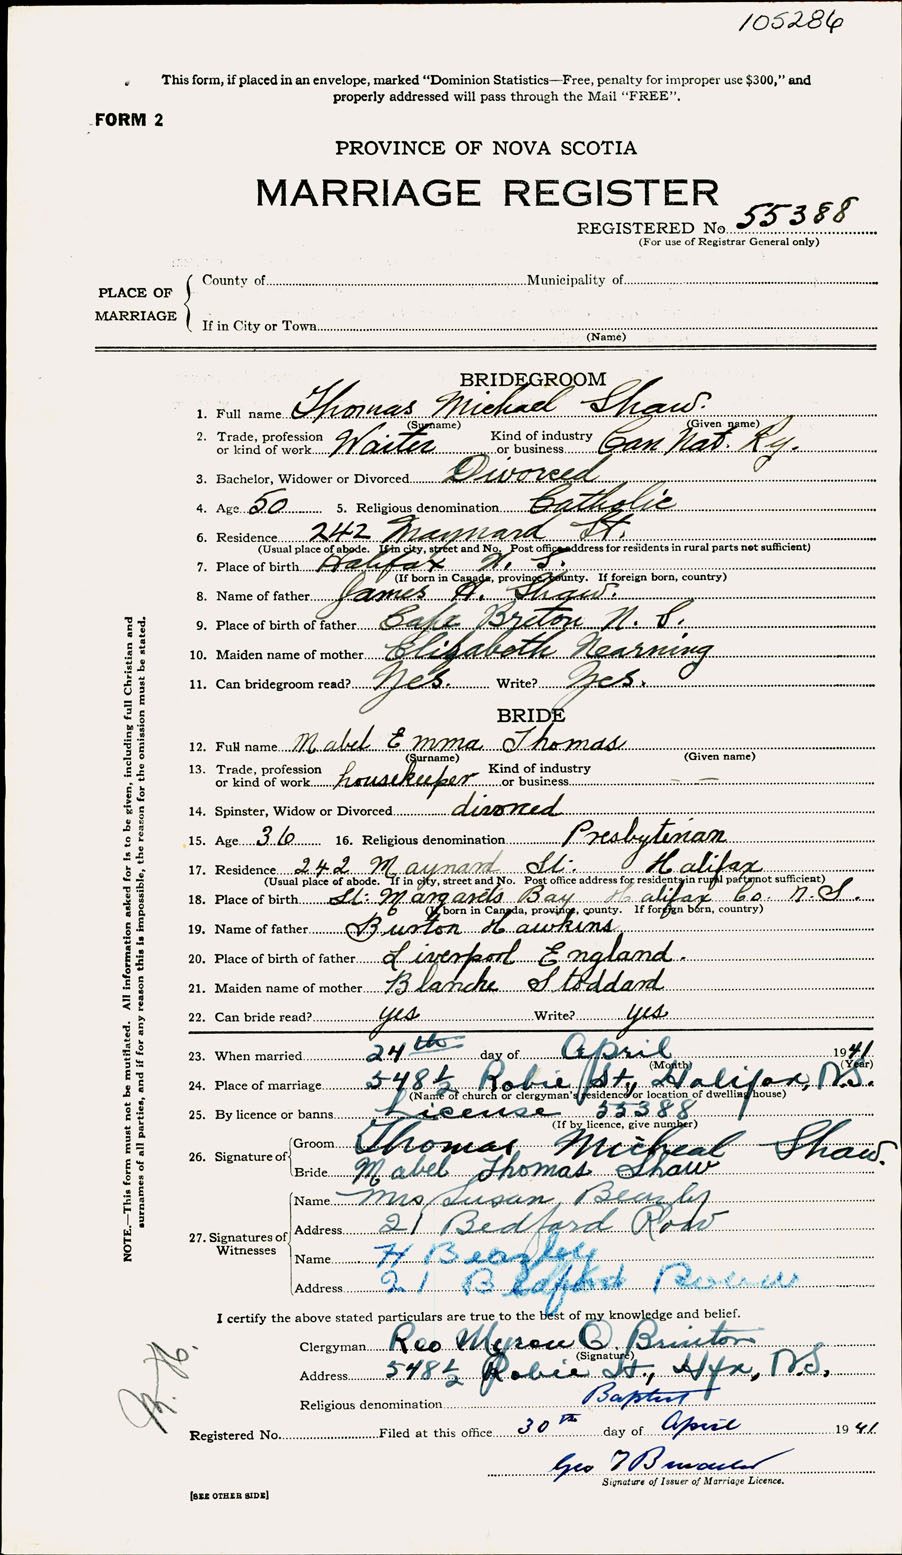 105286
This form, if placed in an envelope, marked “Dominion Statistics—Free, penalty for improper use $300,” and
properly addressed will pass through the Mail “FREE”.
FORM 2
PROVINCE OF NOVA SCOTIA
MARRIAGE REGISTER
REGISTERED No. 55388
(For use of Registrar General only)
PLACE OF MARRIAGE
County of Municipality of
If in City or Town
(Name)
BRIDEGROOM
1. Full name Thomas Michael Shaw.
(Surname) (Given name)
2. Trade, profession or kind of work Waiter Kind of industry or business Can Nat. Ry.
3. Bachelor, Widower or Divorced Divorced
4. Age 50 5. Religious denomination Catholic
6. Residence 242 Maynard St.
(Usual place of abode. If in city, street and No. Post office address for residents in rural parts not sufficient)
7. Place of birth Halifax N. S.
(If born in Canada, province, county. If foreign born, country)
8. Name of father James H. Shaw.
9. Place of birth of father Cape Breton N. S.
10. Maiden name of mother Elizabeth Nearning
11. Can bridegroom read? Yes. Write? Yes.
BRIDE
12. Full name Mabel Emma Thomas
(Surname) (Given name)
13. Trade, profession or kind of work housekeeper Kind of industry or business — —
14. Spinster, Widow or Divorced divorced
15. Age 36 16. Religious denomination Presbyterian
17. Residence 242 Maynard St. Halifax
(Usual place of abode. If in city, street and No. Post office address for residents in rural parts not sufficient)
18. Place of birth St. Margarets Bay Halifax Co. N. S.
(If born in Canada, province, county. If foreign born, country)
19. Name of father Burton Hawkins
20. Place of birth of father Liverpool England.
21. Maiden name of mother Blanche Stoddard
22. Can bride read? yes Write? yes
23. When married 24th day of April 1941
(Month) (Year)
24. Place of marriage 548½ Robie St., Halifax, N.S.
(Name of church or clergyman's residence or location of dwelling house)
25. By licence or banns License 55388
(If by licence, give number)
26. Signature of Groom Thomas Micheal Shaw.
Bride Mabel Thomas Shaw
27. Signatures of Witnesses
Name Mrs Susan Beazley
Address 21 Bedford Row
Name H Beazley
Address 21 Bedford
I certify the above stated particulars are true to the best of my knowledge and belief.
Clergyman Rev Myron O. Brinton
(Signature)
Address 548½ Robie St., Hfx, N.S.
Religious denomination Baptist
Registered No. Filed at this office 30th day of April 1941.
Geo
Signature of Issuer of Marriage Licence.
[SEE OTHER SIDE]
NOTE.—This form must not be mutilated. All information asked for is to be given, including full Christian and
surnames of all parties, and if for any reason this is impossible, the reason for the omission must be stated.